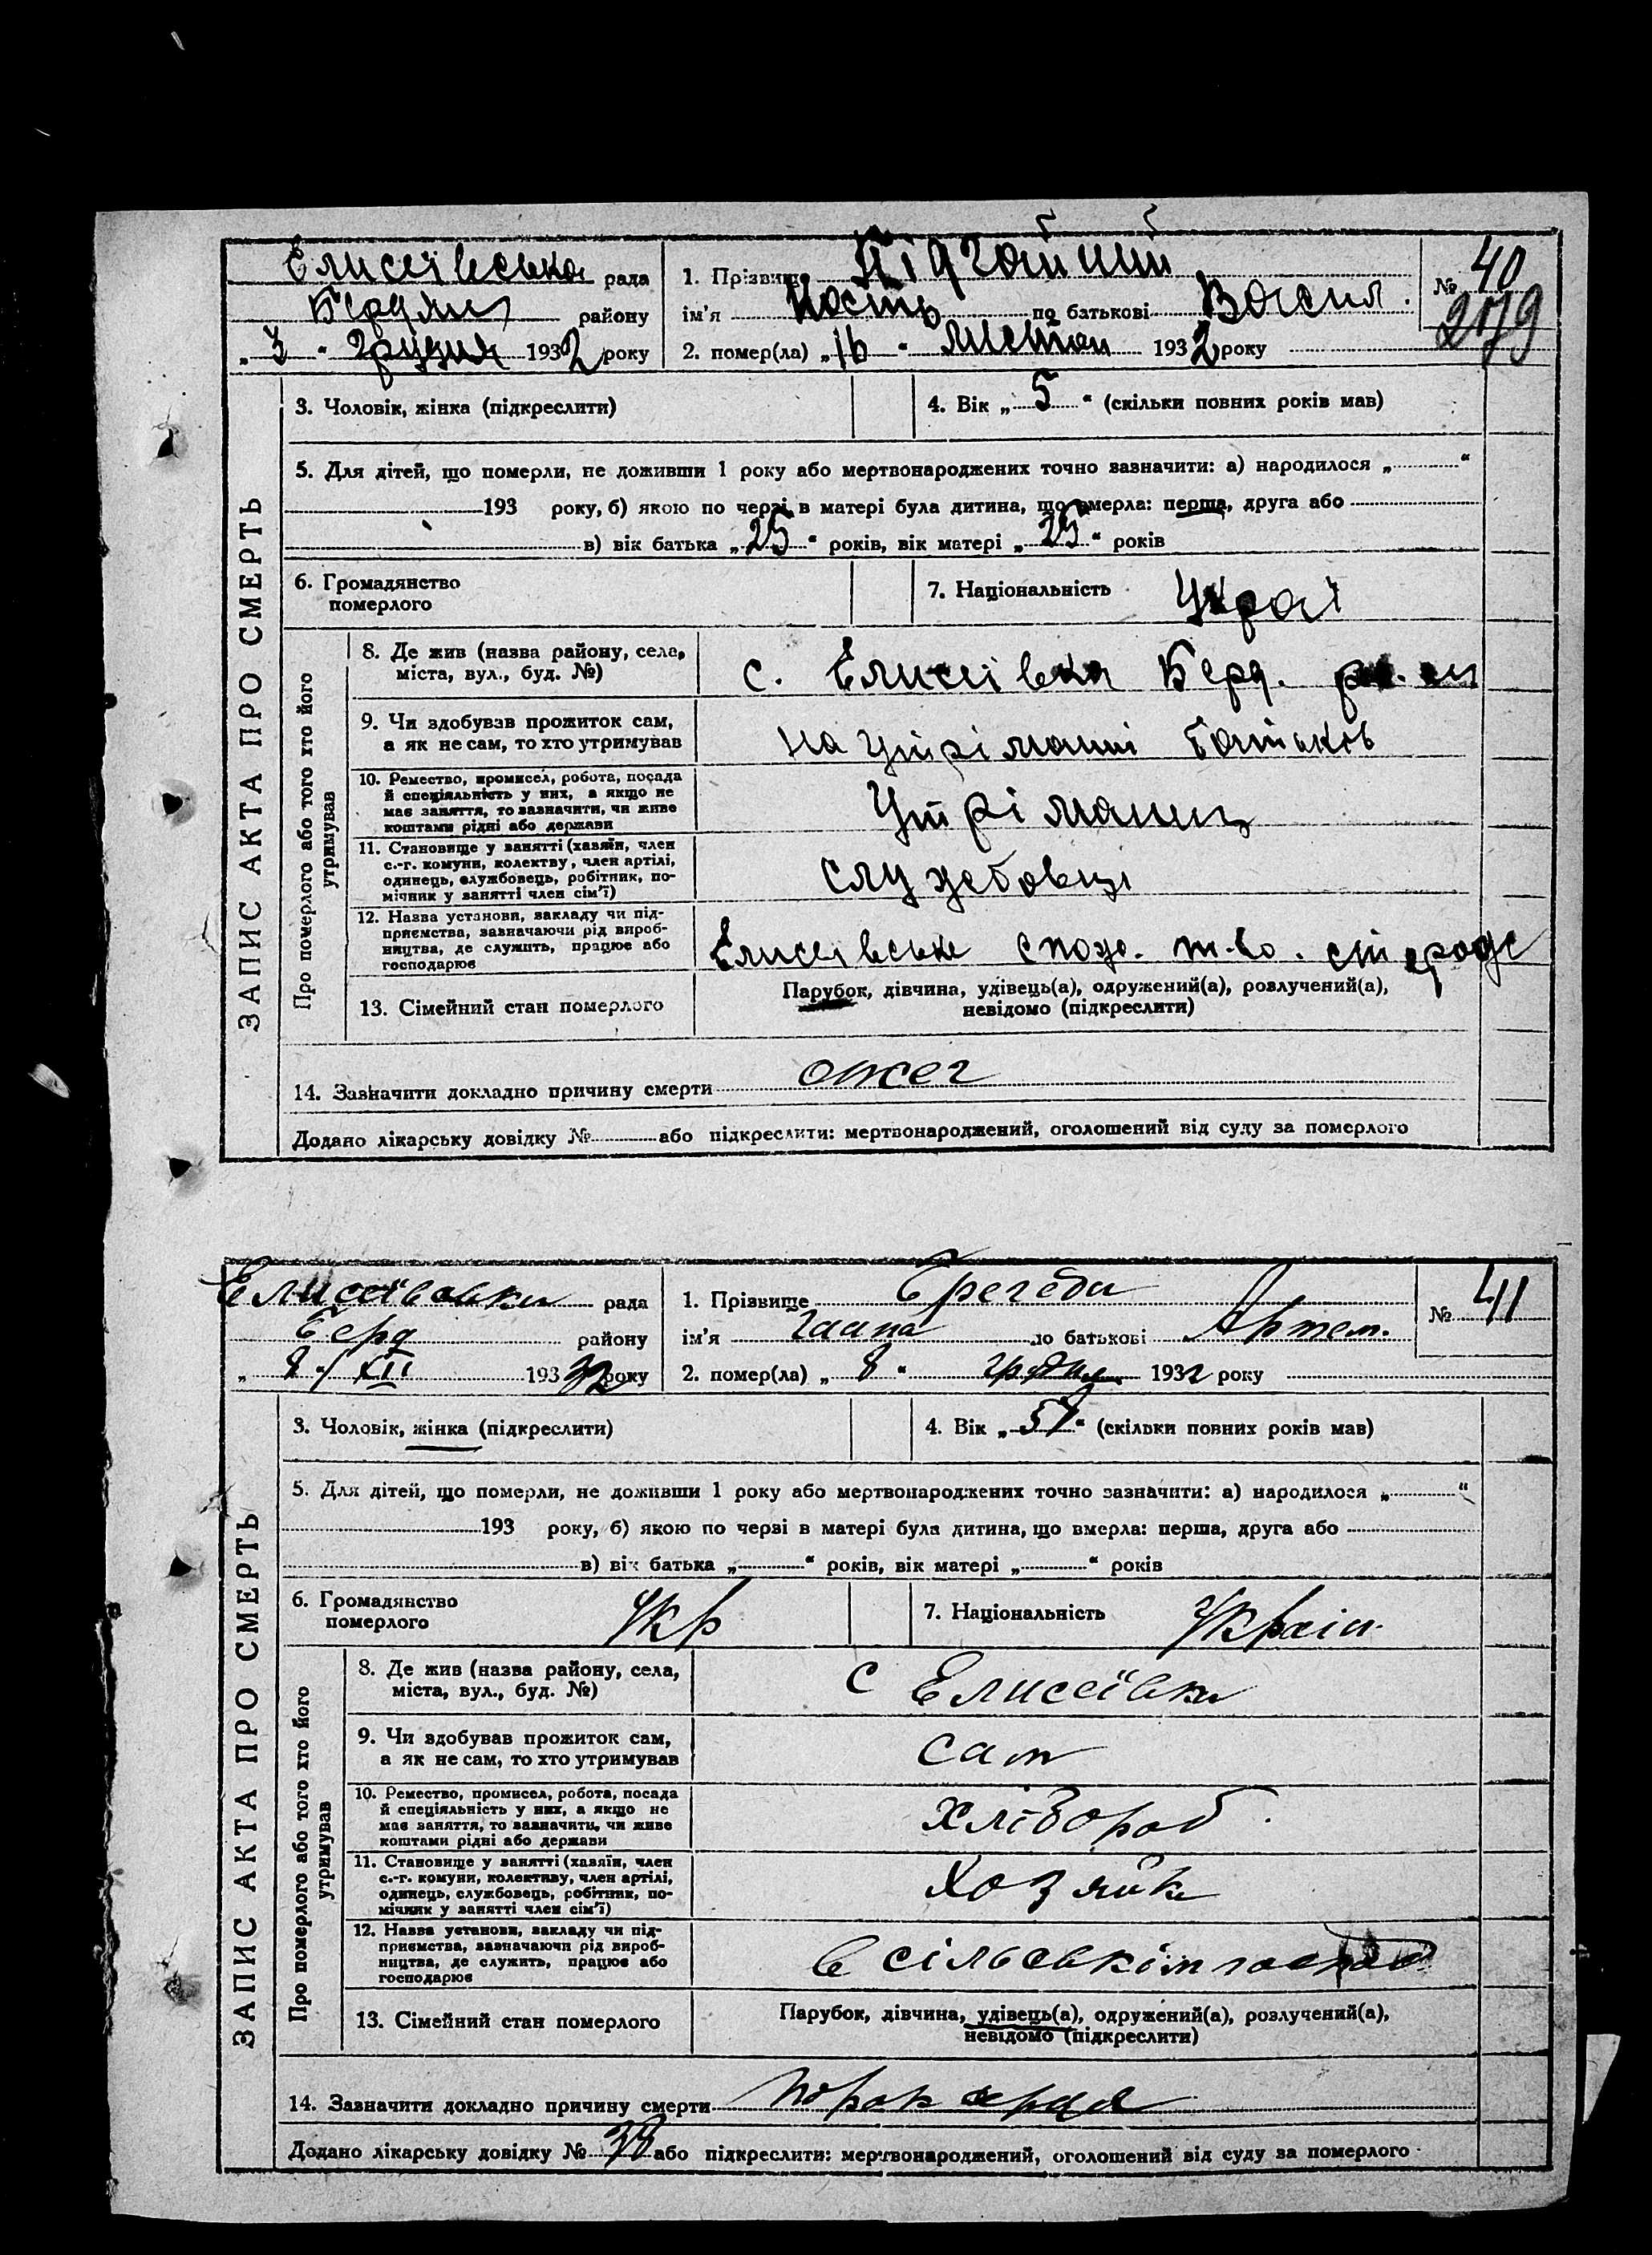 ЗАПИС АКТА ПРО СМЕРТЬ
Елисеївська рада
Бердян району
„ 3 " грудня 1932 року
1. Прізвище Підгайний
ім'я Кость по батькові Васил.
2. помер(ла) „ 16 " листоп 1932 року
№ 40
279
3. Чоловік, жінка (підкреслити)
4. Вік „ 5 " (скільки повних років мав)
5. Для дітей, що померли, не доживши 1 року або мертвонароджених точно зазначити: а) народилося „ "
193 року, б) якою по черзі в матері була дитина, що вмерла: перша, друга або
в) вік батька „ 25 " років, вік матері „ 25 " років
6. Громадянство
померлого
7. Національність Украї
Про померлого або того хто його
утримував
8. Де жив (назва району, села,
міста, вул., буд. №)
с. Елисеївка Берд.
9. Чи здобував прожиток сам,
а як не сам, то хто утримував
на утріманні батьків
10. Ремество, промисел, робота, посада
й спеціяльність у них, а якщо не
має заняття, то зазначити, чи живе
коштами рідні або держави
Утріманец
11. Становище у занятті (хазяїн, член
с.-г. комуни, колектву, член артілі,
одинець, службовець, робітник, по-
мічник у занятті член сім'ї)
служебовци
12. Назва установи, закладу чи під-
приємства, зазначаючи рід вироб-
ництва, де служить, працює або
господарює
Елисеівське спож. т-во.
13. Сімейний стан померлого
Парубок, дівчина, удівець(а), одружений(а), розлучений(а),
невідомо (підкреслити)
14. Зазначити докладно причину смерти ожег
Додано лікарську довідку № або підкреслити: мертвонароджений, оголошений від суду за померлого
ЗАПИС АКТА ПРО СМЕРТЬ
Елисеївська рада
Берд району
„ 8 / XII 1932 року
1. Прізвище
ім'я Ганна по батькові Артем.
2. помер(ла) „ 8 " грудня 1932 року
№ 41
3. Чоловік, жінка (підкреслити)
4. Вік „ 57 " (скільки повних років мав)
5. Для дітей, що померли, не доживши 1 року або мертвонароджених точно зазначити: а) народилося „ "
193 року, б) якою по черзі в матері була дитина, що вмерла: перша, друга або
в) вік батька „ " років, вік матері „ " років
6. Громадянство
померлого
Укр
7. Національність Украін.
Про померлого або того хто його
утримував
8. Де жив (назва району, села,
міста, вул., буд. №)
с Елисеївка
9. Чи здобував прожиток сам,
а як не сам, то хто утримував
сам
10. Ремество, промисел, робота, посада
й спеціяльність у них, а якщо не
має заняття, то зазначити, чи живе
коштами рідні або держави
хлібороб
11. Становище у занятті (хазяїн, член
с.-г. комуни, колективу, член артілі,
одинець, службовець, робітник, по-
мічник у занятті член сім'ї)
Хозяйка
12. Назва установи, закладу чи під-
приємства, зазначаючи рід вироб-
ництва, де служить, працює або
господарює
в сільськім господ
13. Сімейний стан померлого
Парубок, дівчина, удівець(а), одружений(а), розлучений(а),
невідомо (підкреслити)
14. Зазначити докладно причину смерти порок серця
Додано лікарську довідку № 38 або підкреслити: мертвонароджений, оголошений від суду за померлого